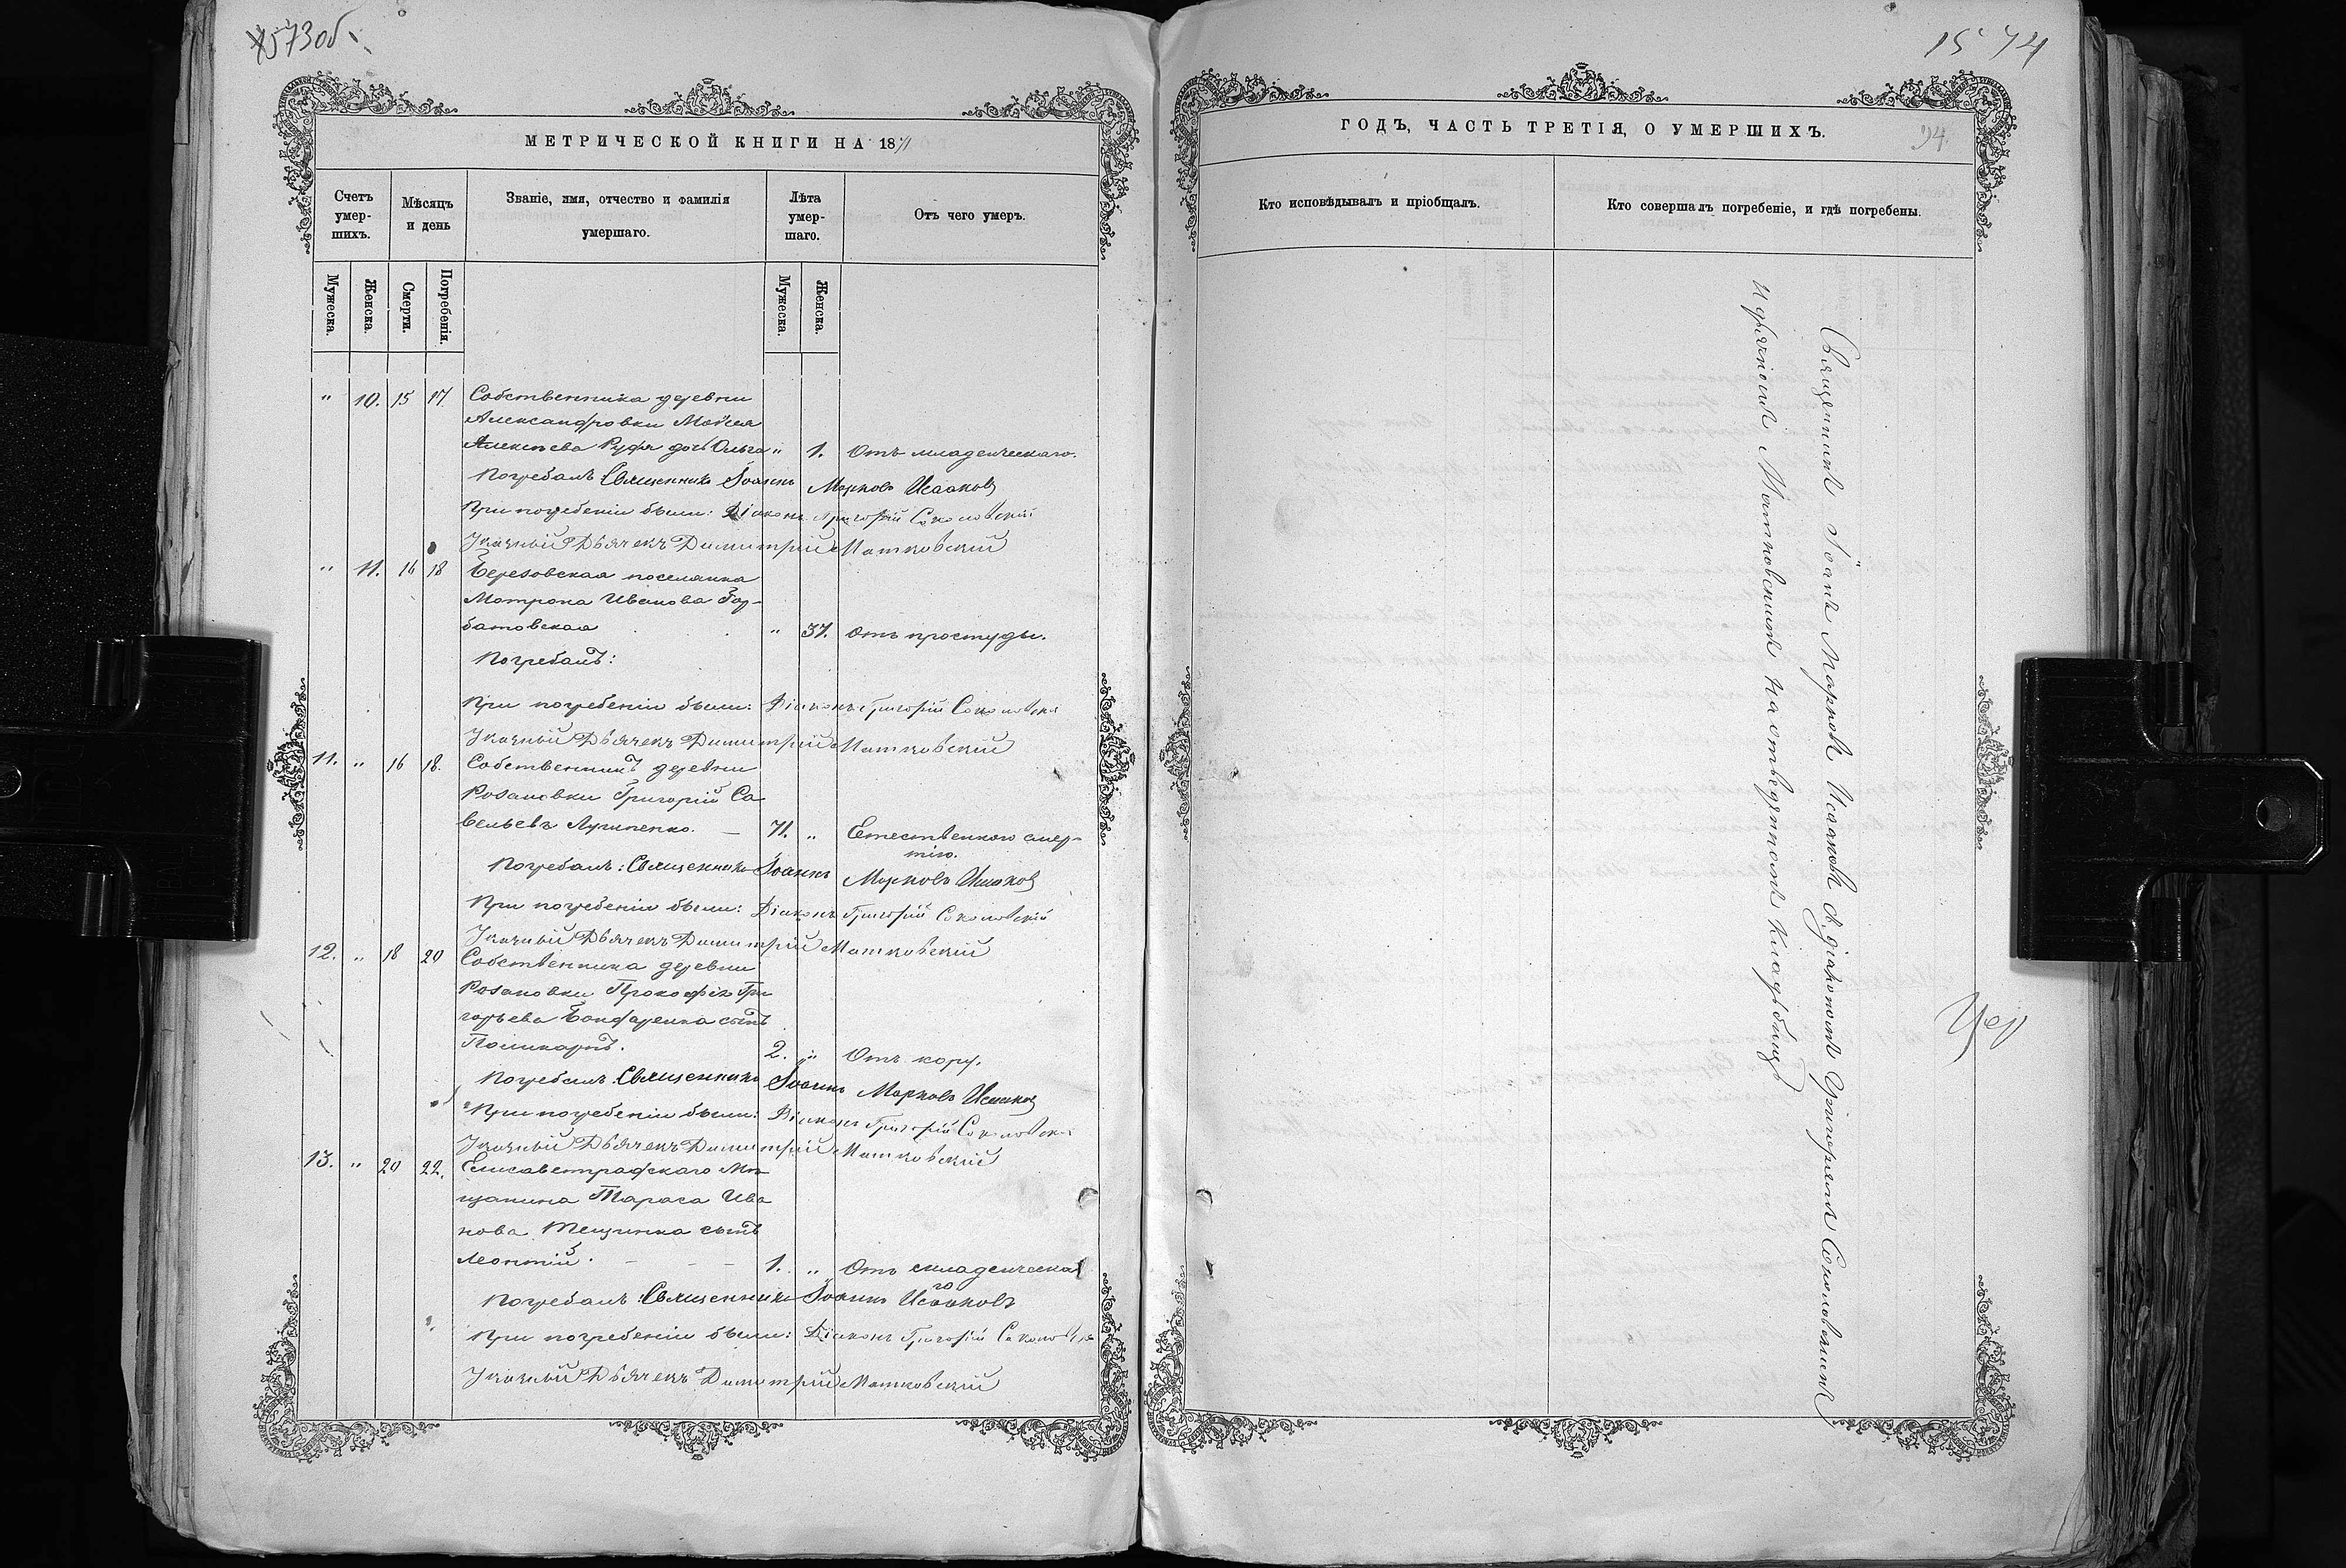 1573об.
МЕТРИЧЕСКОЙ КНИГИ НА 1871
Счетъ умер-шихъ.
Мѣсяцъ и день
Званіе, имя, отчество и фамилія умершаго.
Лѣта умер-шаго.
Отъ чего умеръ.
Мужеска.
Женска.
Смерти.
Погребенія.
Мужеска.
Женска.
" 10. 15 17. Собственника деревни
Александровки Моѵсея
Алексѣева дочь Ольга " 1. Отъ младенческаго.
Погребалъ Священникъ Іоаннъ Марковъ Исааковъ
При погребеніи были: Діаконъ Григорій Соколовскій
Указный Дьячекъ Димитрій Матковскій
" 11. 16 18 Березовская поселянка
Матрона Иванова Гор-
батовская " 37. Отъ простуды.
Погребалъ:
При погребеніи были: Діаконъ Григорій Соколовскій
Указный Дьячекъ Димитрій Матковскій
11. " 16 18. Собственникъ деревни
Розановки Григорій Са
вельевъ — 71. " Естественною смер-
тію.
Погребалъ: Священникъ Іоаннъ Марковъ Исааковъ
При погребеніи были: Діаконъ Григорій Соколовскій
Указный Дьячекъ Димитрій Матковскій
12. " 18 20 Собственника деревни
Розановки Прокофія Гри
горьева Бондаренка сынъ
Поликарпъ. 2. " Отъ кору.
Погребалъ: Священникъ Іоаннъ Марковъ Исааковъ
При погребеніи были: Діаконъ Григорій Соколовскій
Указный Дьячекъ Димитрій Матковскій
13. " 20 22. Елисаветградскаго Мѣ
щанина Тараса Ива
нова сынъ
Леонтій. - - - 1. " Отъ младенческа
го
Погребалъ: Священникъ Іоаннъ Исааковъ
При погребеніи были: Діаконъ Григорій Соколовскій
Указный Дьячекъ Димитрій Матковскій
1574
ГОДЪ, ЧАСТЬ ТРЕТІЯ, О УМЕРШИХЪ.
94.
Кто исповѣдывалъ и пріобщалъ.
Кто совершалъ погребеніе, и гдѣ погребены.
Священникъ Іоаннъ Марковъ Исааковъ съ діакономъ Григоріемъ Соколовскимъ
и дьячкомъ Матковскимъ на отведенномъ кладбищѣ